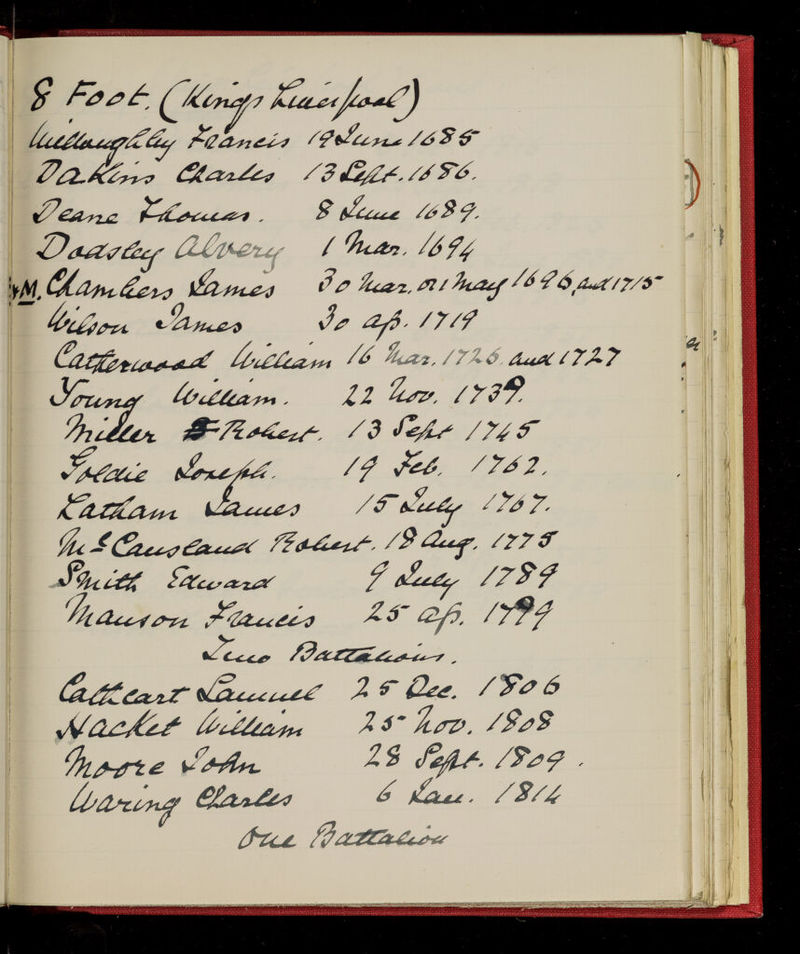 8 Foot. (Kings Liverpool)
Willoughby Francis 19 June 1685
Dakins Charles 13 Sept. 1686.
Deane Thomas. 8 June 1689.
Dodsley Alvery 1 Mar. 1694
+M. Chambers James 30 Mar. or 1 May 1696, and 1715
Wilson James 30 Ap. 1719
Catherwood William 16 Mar. 1726. and 1727
Young William. 22 Nov. 1739.
Miller Robert. 13 Sept 1745
Goldie Joseph. 19 Feb. 1762.
Latham James 15 July 1767.
McCausland Robert. 18 Aug. 1775
Smith Edward 9 July 1789
Manson Francis 25 Ap. 1799
Two Battalions.
Cathcart Samuel 25 Dec. 1806
Hacket William 25 Nov. 1808
Moore John 28 Sept. 1809.
Waring Charles 6 Jan. 1814
One Battalion